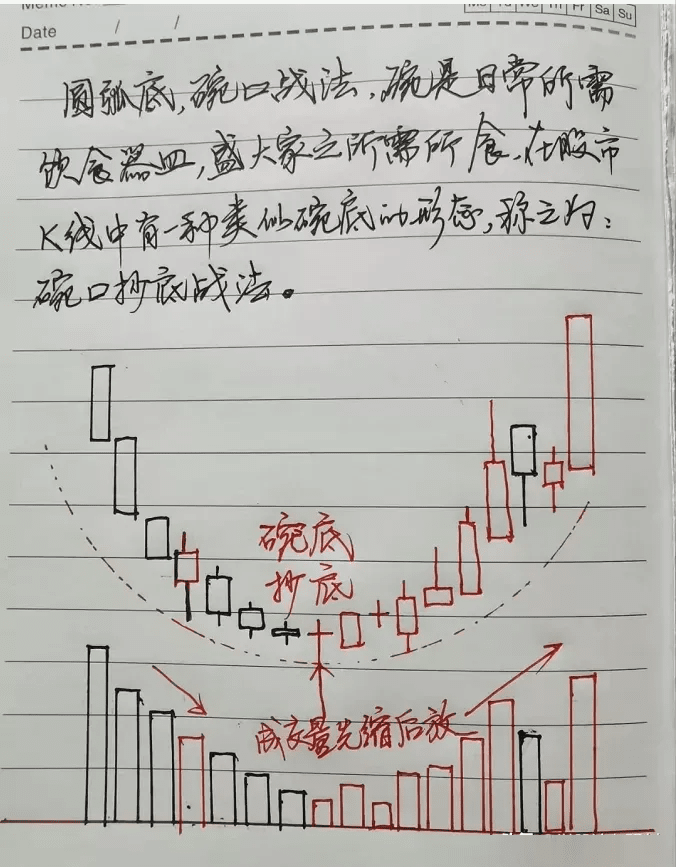 Mo Tu We Th Fr Sa Su
Date / /
圆弧底,碗口战法,碗是日常所需
饮食器皿,盛大家之所需所食,在股市
K线中有一种类似碗底的形态,称之为:
碗口抄底战法。
碗底
抄底
成交量先缩后放